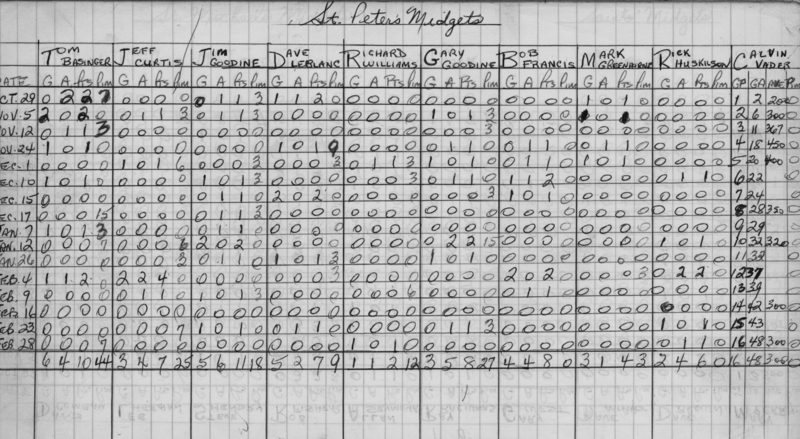 St. Peter's Midgets
TOM BASINGER JEFF CURTIS JIM GOODINE DAVE LEBLANC RICHARD WILLIAMS GARY GOODINE BOB FRANCIS MARK GREENHORNE RICK HUSKILSON CALVIN VADER
DATE G A Pts Pim G A Pts Pim G A Pts Pim G A Pts Pim G A Pts Pim G A Pts Pim G A Pts Pim G A Pts Pim G A Pts Pim GP GA AVE Pim
OCT. 29 0 2 2 7 0 0 0 0 0 1 1 3 1 1 2 0 0 0 0 0 0 0 0 0 0 0 0 0 1 0 1 0 0 0 0 0 1 2 200 0
NOV. 5 2 0 2 0 0 1 1 3 0 1 1 3 0 0 0 0 0 0 0 0 1 0 1 3 0 0 0 0 0 0 0 0 0 0 2 6 300 0
NOV. 12 0 1 1 3 0 0 0 0 0 0 0 0 0 0 0 0 0 0 0 0 0 0 0 3 0 0 0 0 0 0 0 0 0 0 0 0 3 11 367 0
NOV. 24 1 0 1 0 0 0 0 0 0 0 0 0 1 0 1 9 0 0 0 0 0 1 1 0 0 0 0 0 0 1 1 0 0 0 0 0 4 18 450 0
DEC. 1 0 0 0 0 1 0 1 6 0 0 0 3 0 0 0 3 0 1 1 3 1 0 1 0 0 1 1 0 1 0 1 0 0 0 0 0 5 20 400 0
DEC. 10 1 0 1 0 0 0 0 0 1 0 1 3 0 0 0 0 0 0 0 3 0 1 1 0 1 1 2 0 0 0 0 0 0 1 1 0 6 22 0
DEC. 15 0 0 0 0 0 0 0 0 0 1 1 0 2 0 2 0 0 0 0 0 0 0 0 3 1 0 1 0 0 0 0 0 0 0 0 0 7 24 0
DEC. 17 0 0 0 15 0 0 0 0 0 1 1 3 0 0 0 0 0 0 0 0 0 0 0 0 0 0 0 0 0 0 0 0 0 0 0 0 8 28 350 0
JAN. 7 1 0 1 3 0 0 0 0 0 0 0 0 0 0 0 0 0 0 0 0 0 0 0 0 0 0 0 0 0 0 0 0 0 0 0 0 9 29 0
JAN. 12 0 0 0 7 0 0 0 6 2 0 2 0 0 0 0 0 0 0 0 0 0 2 2 15 0 0 0 0 0 0 0 0 1 0 1 0 10 32 320 0
JAN 26 0 0 0 0 0 0 0 3 0 1 1 0 1 0 1 3 0 0 0 0 1 0 1 0 0 0 0 0 0 0 0 0 0 0 0 0 11 32 0
FEB. 4 1 1 2 0 2 2 4 0 0 0 0 0 0 0 0 3 0 0 0 0 0 0 0 0 2 0 2 0 0 0 0 3 0 2 2 0 12 37 0
FEB. 9 0 0 0 0 0 1 1 1 0 1 3 0 0 0 0 0 0 0 6 0 0 0 0 0 1 1 0 0 0 0 0 0 0 0 0 13 39 0
FEB. 16 0 0 0 0 0 0 0 0 0 0 0 0 0 0 0 0 0 0 0 0 0 0 0 0 0 0 0 0 0 0 0 0 0 0 0 0 14 42 300 0
FEB 23 0 0 0 0 0 0 0 7 1 0 1 0 0 1 1 0 0 0 0 0 0 1 1 3 0 0 0 0 0 0 0 0 1 0 1 0 15 43 0
FEB. 28 0 0 0 7 0 0 0 0 0 0 0 0 0 0 0 0 1 0 1 0 0 0 0 0 0 0 0 0 0 0 0 0 0 1 1 0 16 48 300 0
6 4 10 44 3 4 7 25 5 6 11 18 5 2 7 9 1 1 2 12 3 5 8 27 4 4 8 0 3 1 4 3 2 4 6 0 16 48 300 0